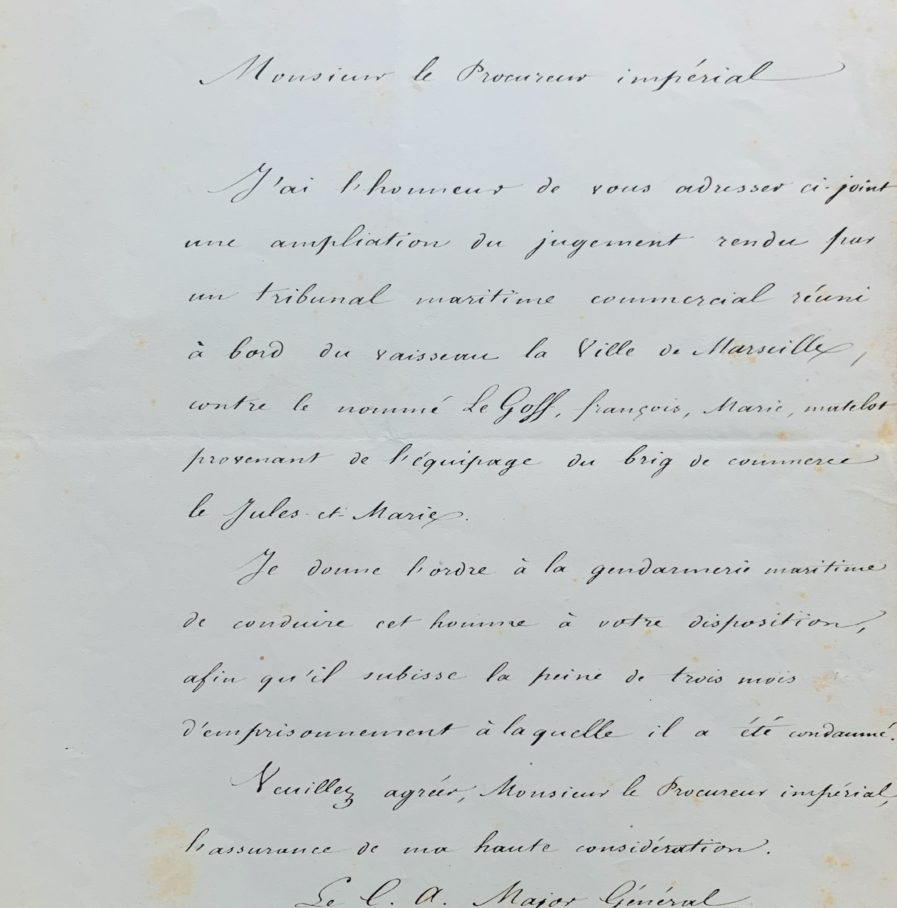 Monsieur le Procureur impérial
J'ai l'honneur de vous adresser ci-joint
une ampliation du jugement rendu par
un tribunal maritime commercial réuni
à bord du vaisseau la Ville de Marseille,
contre le nommé Le Goff, françois, Marie, matelot
provenant de l'équipage du brig de commerce
le Jules-et-Marie.
Je donne l'ordre à la gendarmerie maritime
de conduire cet homme à votre disposition,
afin qu'il subisse la peine de trois mois
d'emprisonnement à laquelle il a été condamné.
Veuillez agréer, Monsieur le Procureur impérial,
l'assurance de ma haute considération.
Le C. A. Major Général